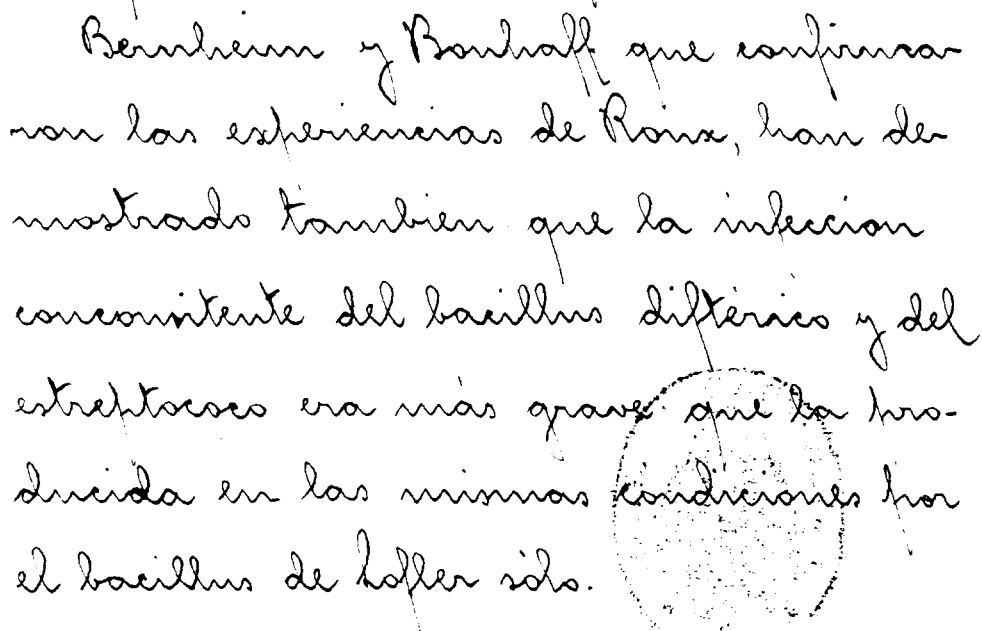 Bernheim y Bonhaff que confirma-
ron las experiencias de Roux, han de-
mostrado tambien que la infeccion
concomitente del bacillus diftérico y del
estreptococo era más grave que la pro-
ducida en las mismas condiciones por
el bacillus de Lofler sólo.